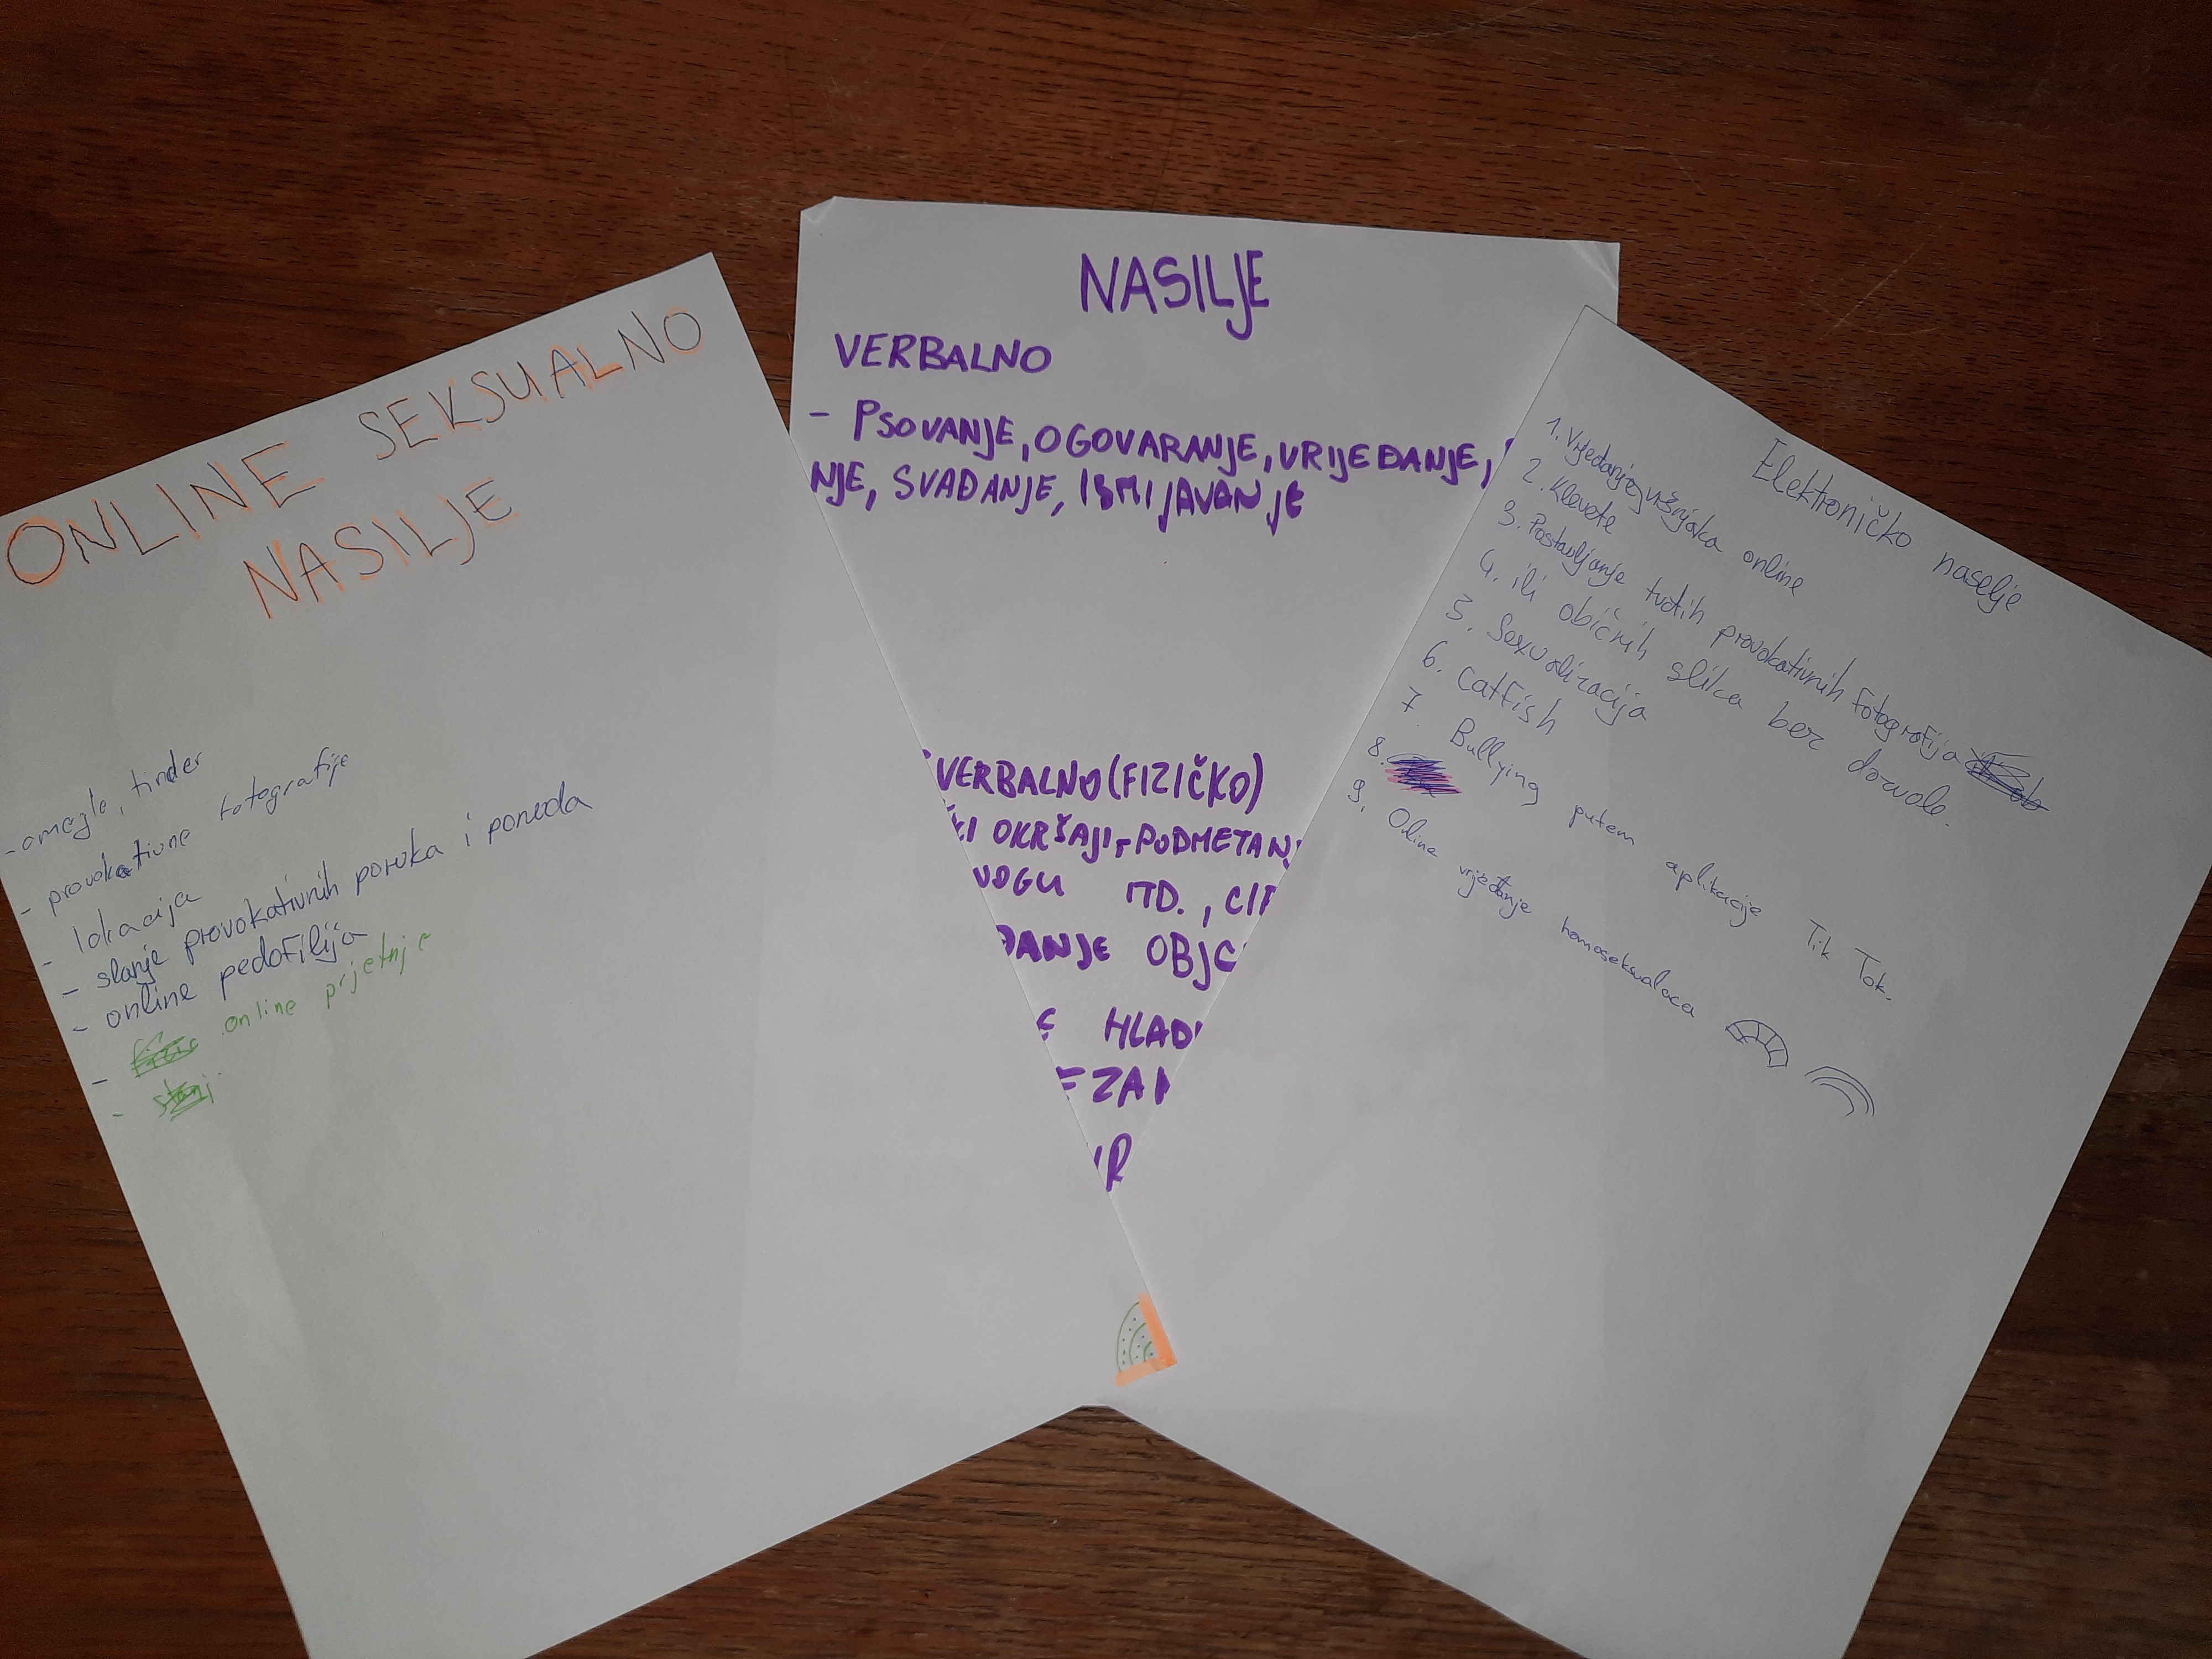 ONLINE SEKSUALNO
NASILJE
- omegle, tinder
- provokativne fotografije
- lokacija
- slanje provokativnih poruka i ponuda
- online pedofilija
- online prjetnje
-
NASILJE
VERBALNO
- PSOVANJE, OGOVARANJE, VRIJEĐANJE,
NJE, SVAĐANJE, ISMIJAVANJE
VERBALNO (FIZIČKO)
OKRŠAJI, PODMETANJ
NOGU ITD.,
ĐANJE
HLAD
Elektroničko naselje
1. Vrijeđanje vršnjaka online
2. Klevete
3. Postavljanje tuđih provokativnih fotografija
4. ili običnih slika bez dozvole.
5. Sexualizacija
6. Catfish
7. Bullying putem aplikacije Tik Tok.
8.
9. Online vrjeđanje homoseksualaca